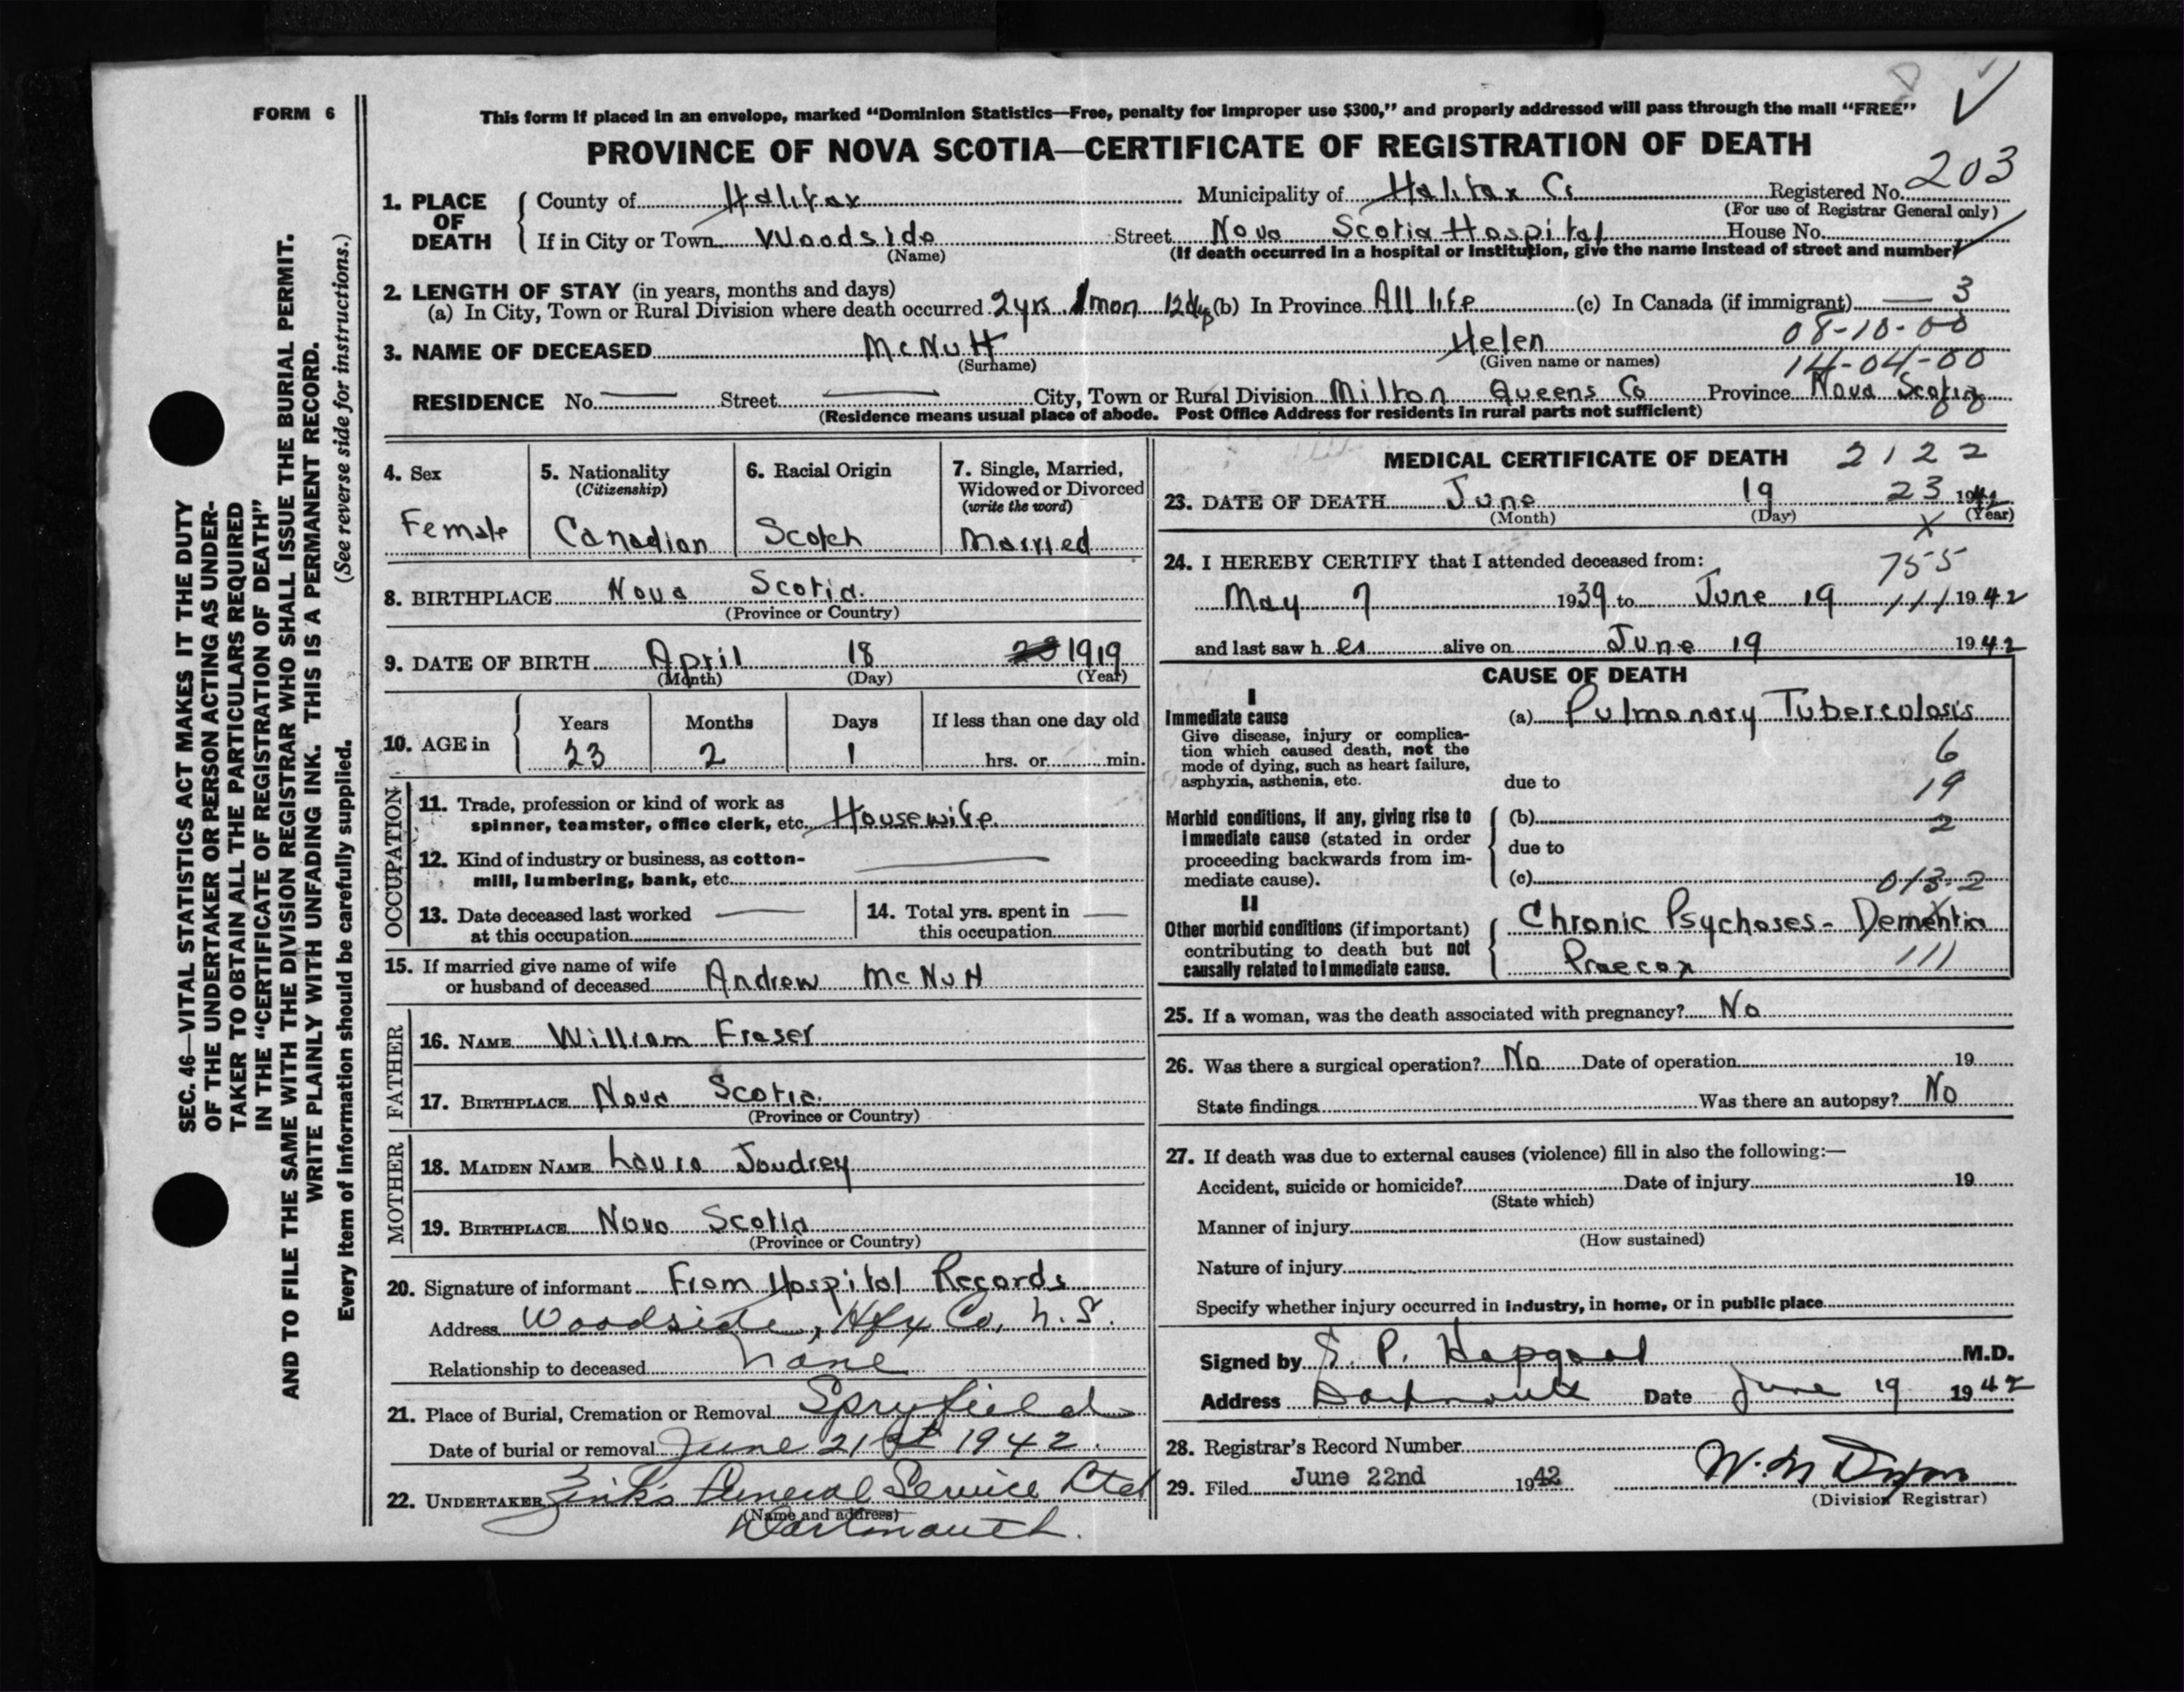 FORM 6
This form if placed in an envelope, marked "Dominion Statistics—Free, penalty for improper use $300," and properly addressed will pass through the mail "FREE"
PROVINCE OF NOVA SCOTIA—CERTIFICATE OF REGISTRATION OF DEATH
203
1. PLACE OF DEATH
County of Halifax Municipality of Halifax Co Registered No.
(For use of Registrar General only)
If in City or Town Woodside Street Nova Scotia Hospital House No.
(Name) (If death occurred in a hospital or institution, give the name instead of street and number)
2. LENGTH OF STAY (in years, months and days)
(a) In City, Town or Rural Division where death occurred 2 yrs 1 mon 12 dys (b) In Province All life (c) In Canada (if immigrant) — 3
08-10-00
3. NAME OF DECEASED McNutt Helen
(Surname) (Given name or names) 14-04-00
RESIDENCE No. — Street — City, Town or Rural Division Milton Queens Co Province Nova Scotia
(Residence means usual place of abode. Post Office Address for residents in rural parts not sufficient)
4. Sex
Female
5. Nationality
(Citizenship)
Canadian
6. Racial Origin
Scotch
7. Single, Married,
Widowed or Divorced
(write the word)
Married
8. BIRTHPLACE Nova Scotia
(Province or Country)
9. DATE OF BIRTH April 18 1919
(Month) (Day) (Year)
10. AGE in
Years Months Days If less than one day old
23 2 1 hrs. or min.
OCCUPATION
11. Trade, profession or kind of work as
spinner, teamster, office clerk, etc. Housewife
12. Kind of industry or business, as cotton-
mill, lumbering, bank, etc. —
13. Date deceased last worked —
at this occupation
14. Total yrs. spent in —
this occupation
15. If married give name of wife
or husband of deceased Andrew McNutt
FATHER
16. NAME William Fraser
17. BIRTHPLACE Nova Scotia
(Province or Country)
MOTHER
18. MAIDEN NAME Laura Joudrey
19. BIRTHPLACE Nova Scotia
(Province or Country)
20. Signature of informant From Hospital Records
Address Woodside, Hfx Co, N.S.
Relationship to deceased None
21. Place of Burial, Cremation or Removal Spryfield
Date of burial or removal June 21st 1942.
22. UNDERTAKER Zink's Funeral Service Ltd
(Name and address)
Dartmouth.
MEDICAL CERTIFICATE OF DEATH 2122
23. DATE OF DEATH June 19 23 1942
(Month) (Day) (Year)
X
24. I HEREBY CERTIFY that I attended deceased from: 755
May 7 1939 to June 19 111 1942
and last saw her alive on June 19 1942
CAUSE OF DEATH
I
Immediate cause
Give disease, injury or complica-
tion which caused death, not the
mode of dying, such as heart failure,
asphyxia, asthenia, etc.
(a) Pulmonary Tuberculosis
6
due to 19
Morbid conditions, if any, giving rise to
immediate cause (stated in order
proceeding backwards from im-
mediate cause).
(b) 2
due to
(c) 013.2
II
Other morbid conditions (if important)
contributing to death but not
causally related to immediate cause.
Chronic Psychoses - Dementia
Praecox 111
25. If a woman, was the death associated with pregnancy? No
26. Was there a surgical operation? No Date of operation 19
State findings Was there an autopsy? No
27. If death was due to external causes (violence) fill in also the following:—
Accident, suicide or homicide? Date of injury 19
(State which)
Manner of injury
(How sustained)
Nature of injury
Specify whether injury occurred in industry, in home, or in public place
Signed by E. P. Hapgood M.D.
Address Dartmouth Date June 19 1942
28. Registrar's Record Number
29. Filed June 22nd 1942
(Division Registrar)
SEC. 46—VITAL STATISTICS ACT MAKES IT THE DUTY
OF THE UNDERTAKER OR PERSON ACTING AS UNDER-
TAKER TO OBTAIN ALL THE PARTICULARS REQUIRED
IN THE "CERTIFICATE OF REGISTRATION OF DEATH"
AND TO FILE THE SAME WITH THE DIVISION REGISTRAR WHO SHALL ISSUE THE BURIAL PERMIT.
WRITE PLAINLY WITH UNFADING INK. THIS IS A PERMANENT RECORD.
(See reverse side for instructions.)
Every item of information should be carefully supplied.